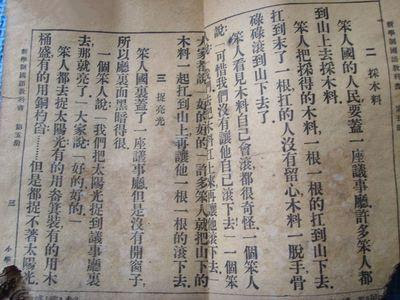 新學制國語教科書
二 採木料
笨人國的人民要蓋一座議事廳許多笨人都
到山上去採木料。
笨人把採得的木料一根一根的扛到山下去。
扛到末了一根扛的人沒有留心木料一脫手骨
碌碌滾到山下去了。
笨人看見木料自己會滾都很奇怪。一個笨人
說「可惜我們沒有讓他自己滾下去」一個笨
木料扛上來再讓他一根一根的滾下去」
大家都說「好的好的」許多笨人就把山下的
木料一起扛到山上再讓他一根一根的滾下去。
三 捉亮光
笨人國裏蓋了一座議事廳但是沒有開窗子,
所以廳裏面黑暗得很。
一個笨人說「我們把太陽光捉到議事廳裏
去那就亮了」大家說「好的好的」
笨人都去捉太陽光有的用畚箕裝有的用木
桶盛有的用銅杓舀……但是都捉不著太陽光。
新學制國語教科書 第五冊 三 小學